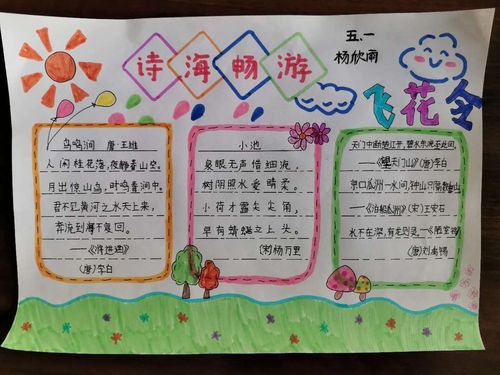 诗海畅游
五、一
杨欣雨
飞花令
鸟鸣涧 唐·王维
人闲桂花落，夜静春山空。
月出惊山鸟，时鸣春涧中。
君不见黄河之水天上来，
奔流到海不复回。
——《将进酒》
(唐)李白
小池
泉眼无声惜细流，
树阴照水爱晴柔。
小荷才露尖尖角，
早有蜻蜓立上头。
(宋)杨万里
天门中断楚江开，碧水东流至此回。
——《望天门山》(唐)李白
京口瓜洲一水间，钟山只隔数重山
——《泊船瓜洲》(宋)王安石
水不在深，有龙则灵——《陋室铭》
(唐)刘禹锡